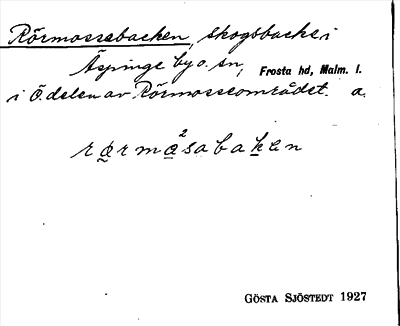 Rörmossebacken, skogsbacke i
Äspinge by o. sn, Frosta hd, Malm. l.
i Ö. delen av Rörmosseområdet. a.
rørmɑ²sabaken
GÖSTA SJÖSTEDT 1927